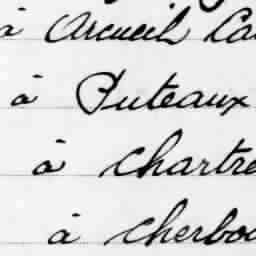 à Arcueil Ca
à Puteaux
à Chartre
à Cherbou